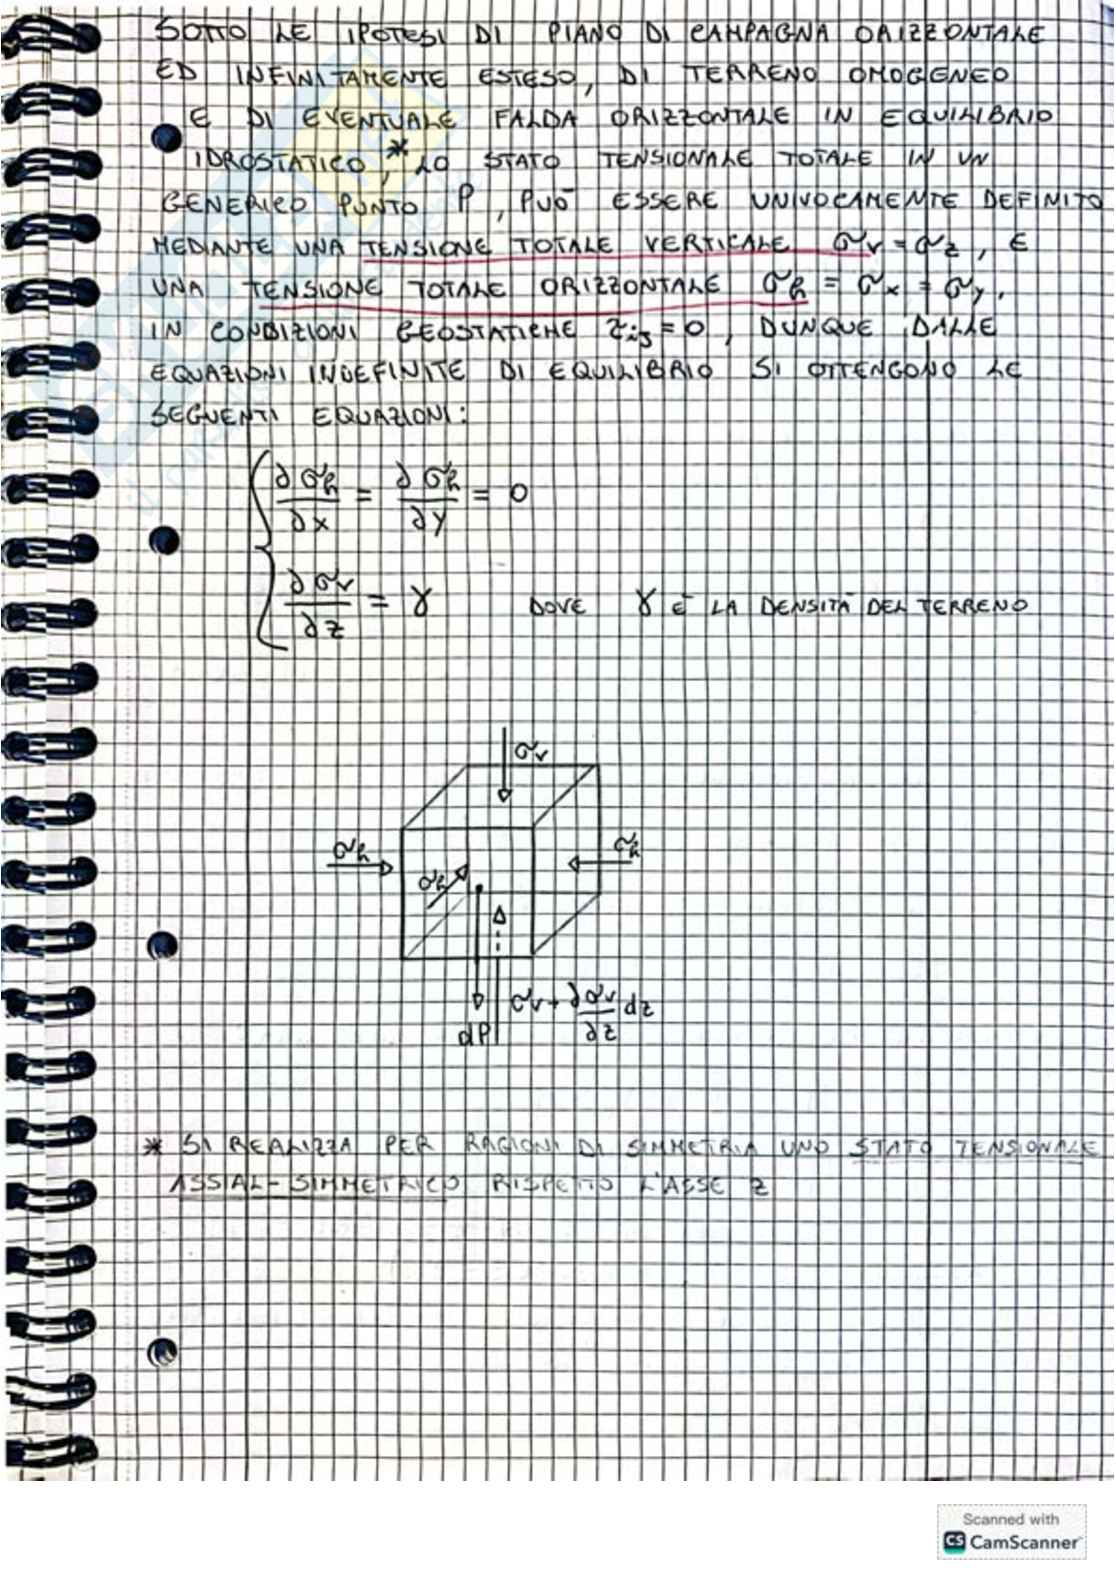 SOTTO LE IPOTESI DI PIANO DI CAMPAGNA ORIZZONTALE
ED INFINITAMENTE ESTESO, DI TERRENO OMOGENEO
E DI EVENTUALE FALDA ORIZZONTALE IN EQUILIBRIO
IDROSTATICO,* LO STATO TENSIONALE TOTALE IN UN
GENERICO PUNTO P, PUÒ ESSERE UNIVOCAMENTE DEFINITO
MEDIANTE UNA TENSIONE TOTALE VERTICALE σv = σz, E
UNA TENSIONE TOTALE ORIZZONTALE σh = σx = σy.
IN CONDIZIONI GEOSTATICHE τij = 0, DUNQUE DALLE
EQUAZIONI INDEFINITE DI EQUILIBRIO SI OTTENGONO LE
SEGUENTI EQUAZIONI:
∂σh/∂x = ∂σh/∂y = 0
∂σv/∂z = γ DOVE γ È LA DENSITÀ DEL TERRENO
σv
σh
σh
σh
σv + ∂σv/∂z dz
dP
* SI REALIZZA PER RAGIONI DI SIMMETRIA UNO STATO TENSIONALE
ASSIAL-SIMMETRICO RISPETTO L'ASSE z
Scanned with
CS CamScanner